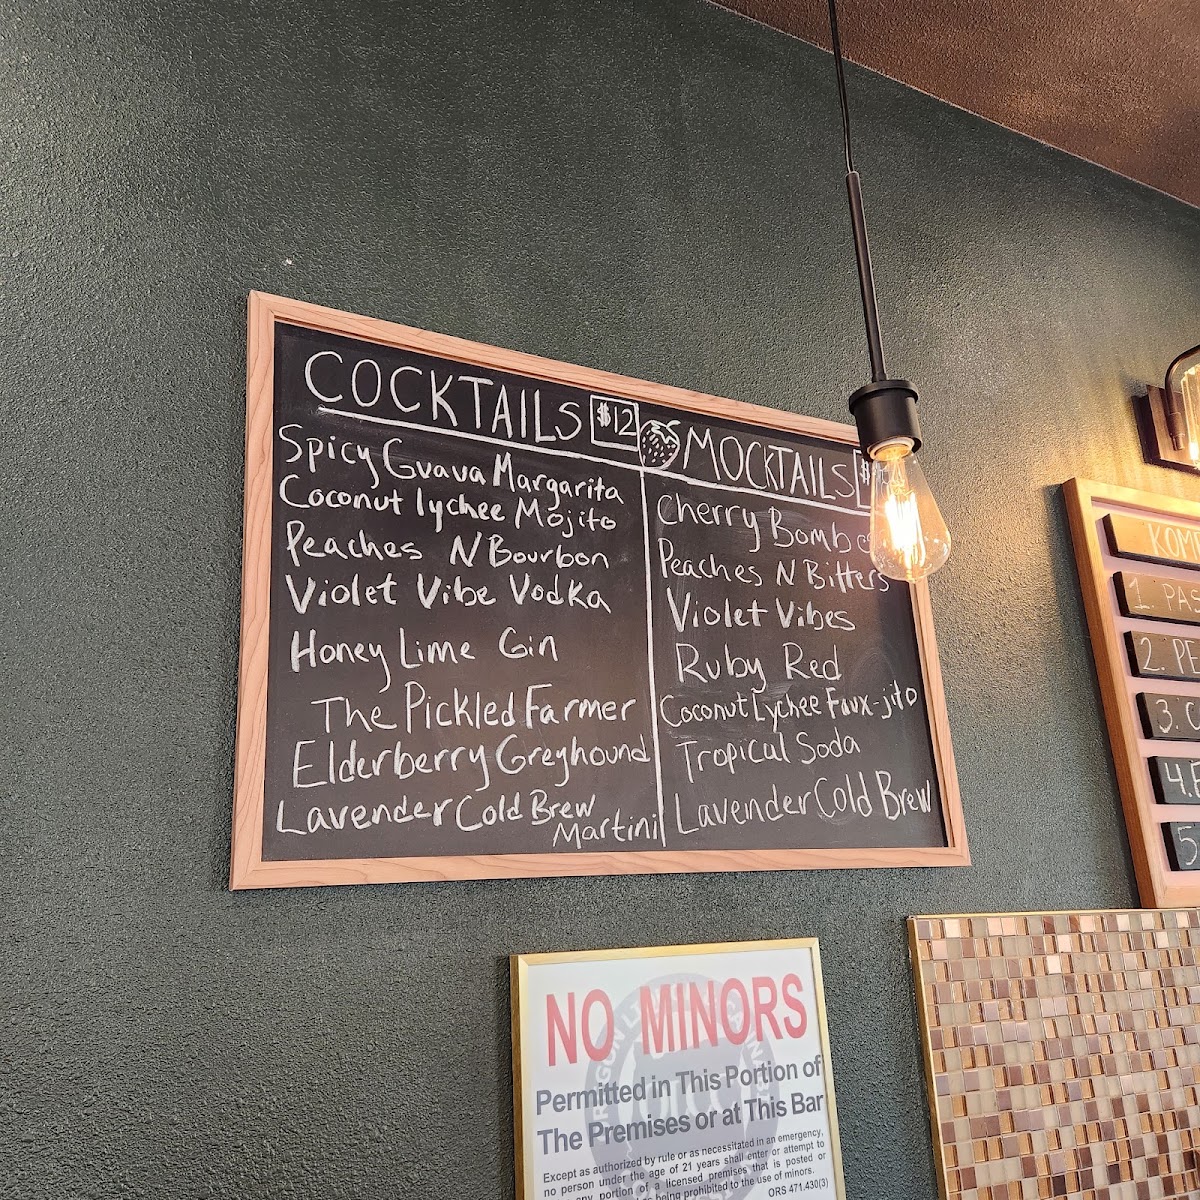 COCKTAILS $12
Spicy Guava Margarita
Coconut lychee Mojito
Peaches N Bourbon
Violet Vibe Vodka
Honey Lime Gin
The Pickled Farmer
Elderberry Greyhound
Lavender Cold Brew
Martini
MOCKTAILS
Cherry
Peaches N Bitters
Violet Vibes
Ruby Red
Coconut Lychee Faux-jito
Tropical Soda
Lavender Cold Brew
1.
2.
3.
4.
5
NO MINORS
Permitted in This Portion of
The Premises or at This Bar
Except as authorized by rule or as necessitated in an emergency,
no person under the age of 21 years shall enter or attempt to
any portion of a licensed premises that is posted or
being prohibited to the use of minors.
ORS 471.430(3)